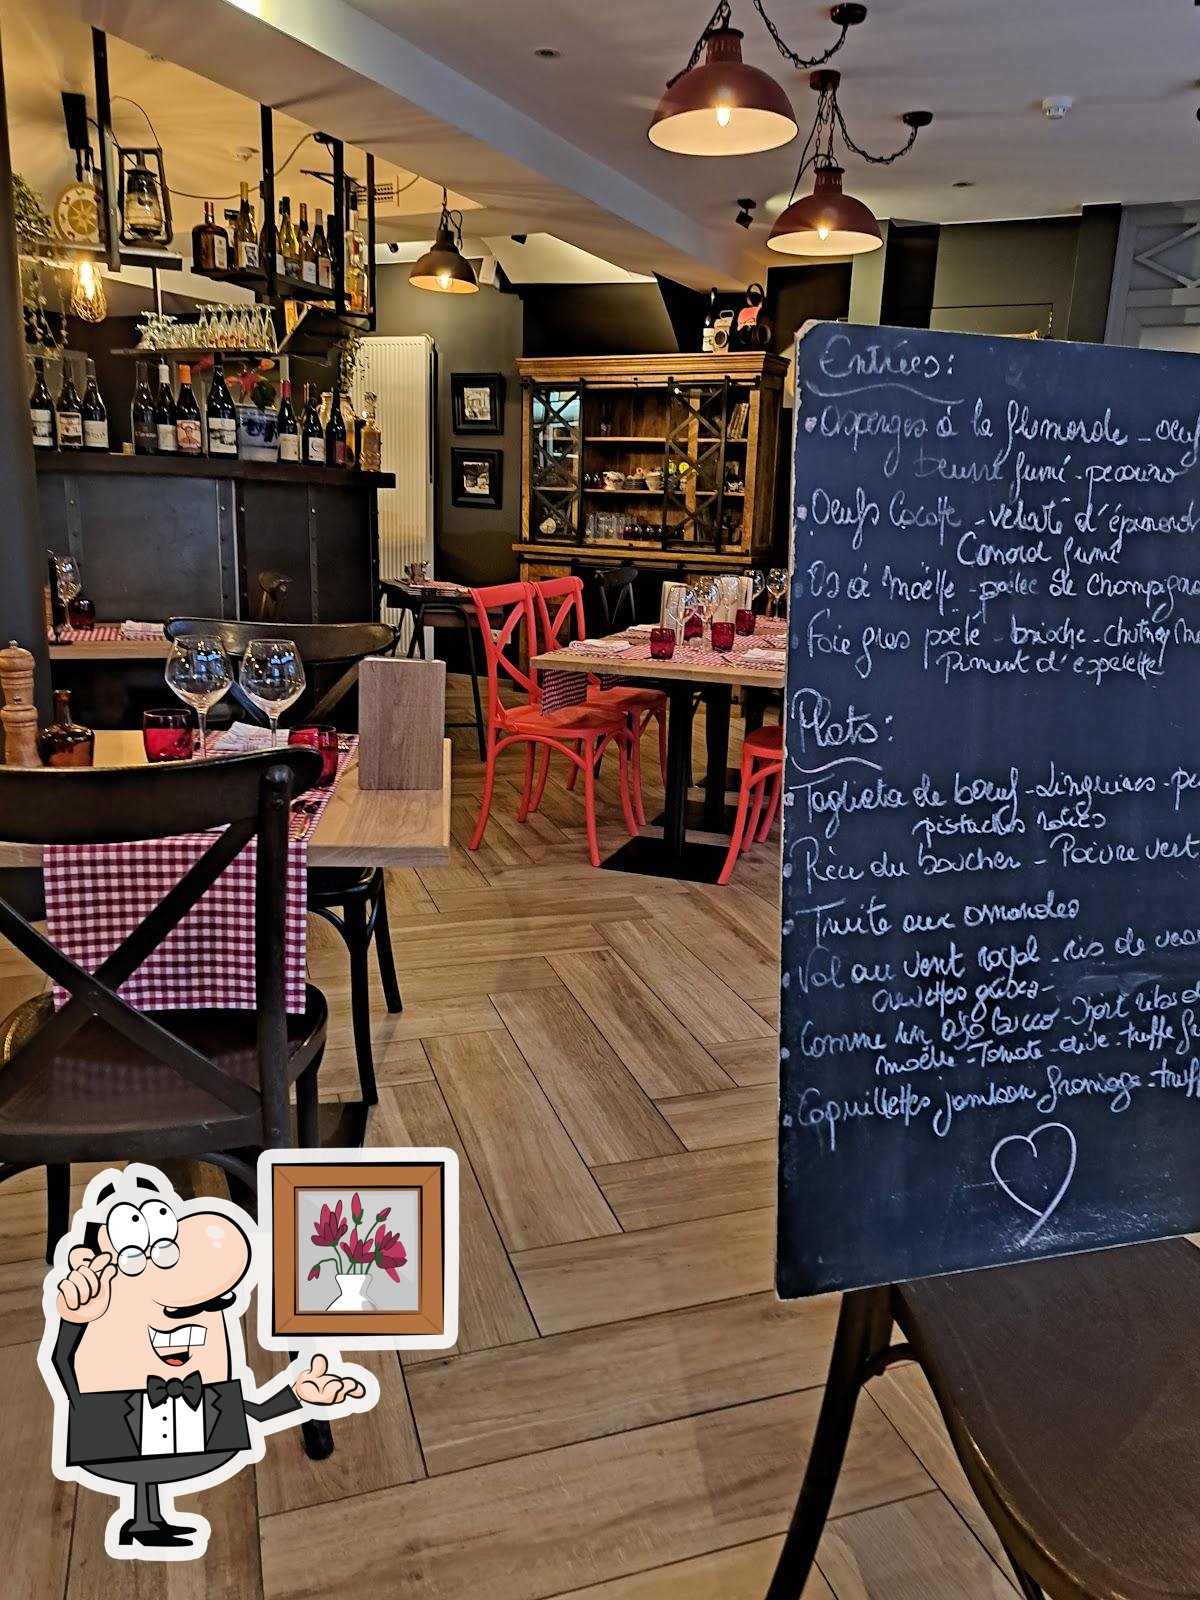 Entrées:
Asperges à la flamande - oeuf
beurre fumé - pecorino
Oeufs Cocotte - velouté d'épinard
Canard fumé
Os à Moëlle - poêlée de Champigno
Foie gras poêlé - brioche - chutney
Piment d'espelette
Plats:
Tagliata de boeuf - Linguines - pe
pistaches
Pièce du boucher - Poivre vert
Truite aux amandes
Vol au vent royal - ris de veau
crevettes grises -
Comme un osso bucco - Short ribs
moëlle - Tomate - olive - truffe
Coquillettes jambon fromage - truff